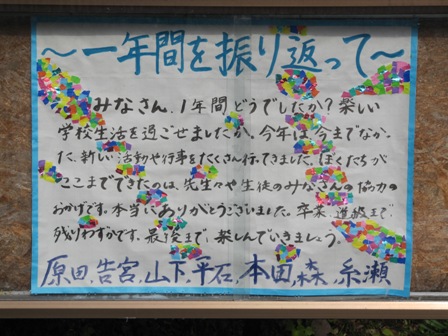 ～一年間を振り返って～
みなさん、1年間どうでしたか？楽しい
学校生活を過ごせましたか。今年は今までなかっ
た、新しい活動や行事をたくさん行ってきました。ぼくたちが
ここまでできたのは、先生々や生徒のみなさんの協力の
おかげです。本当にありがとうございました。卒業、進級まで
残りわずかです。最後まで、楽しんでいきましょう。
原田,吉宮,山下,平石,本田,森,糸瀬